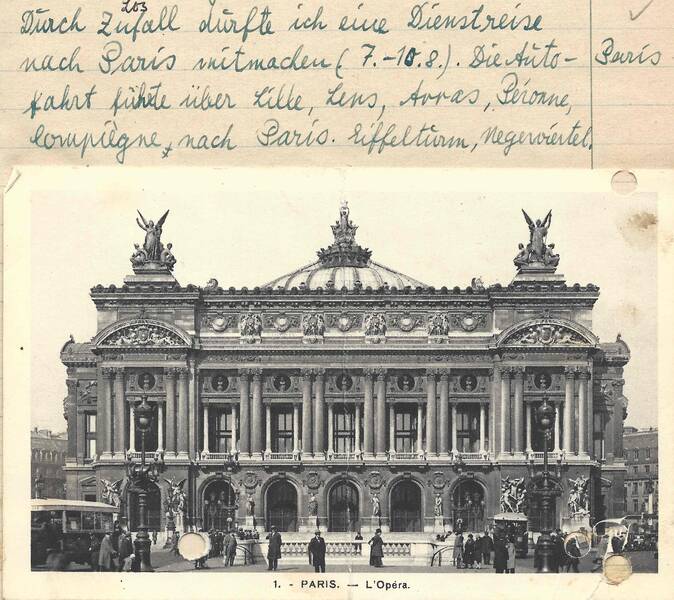 Durch Zufall durfte ich eine Dienstreise
nach Paris mitmachen (7.-10.8.). Die Auto-
Paris
fahrt führte über Lille, Lens, Arras, Péronne,
Compiègne, nach Paris. Eiffelturm, Negerviertel,
1. - PARIS. — L'Opéra.